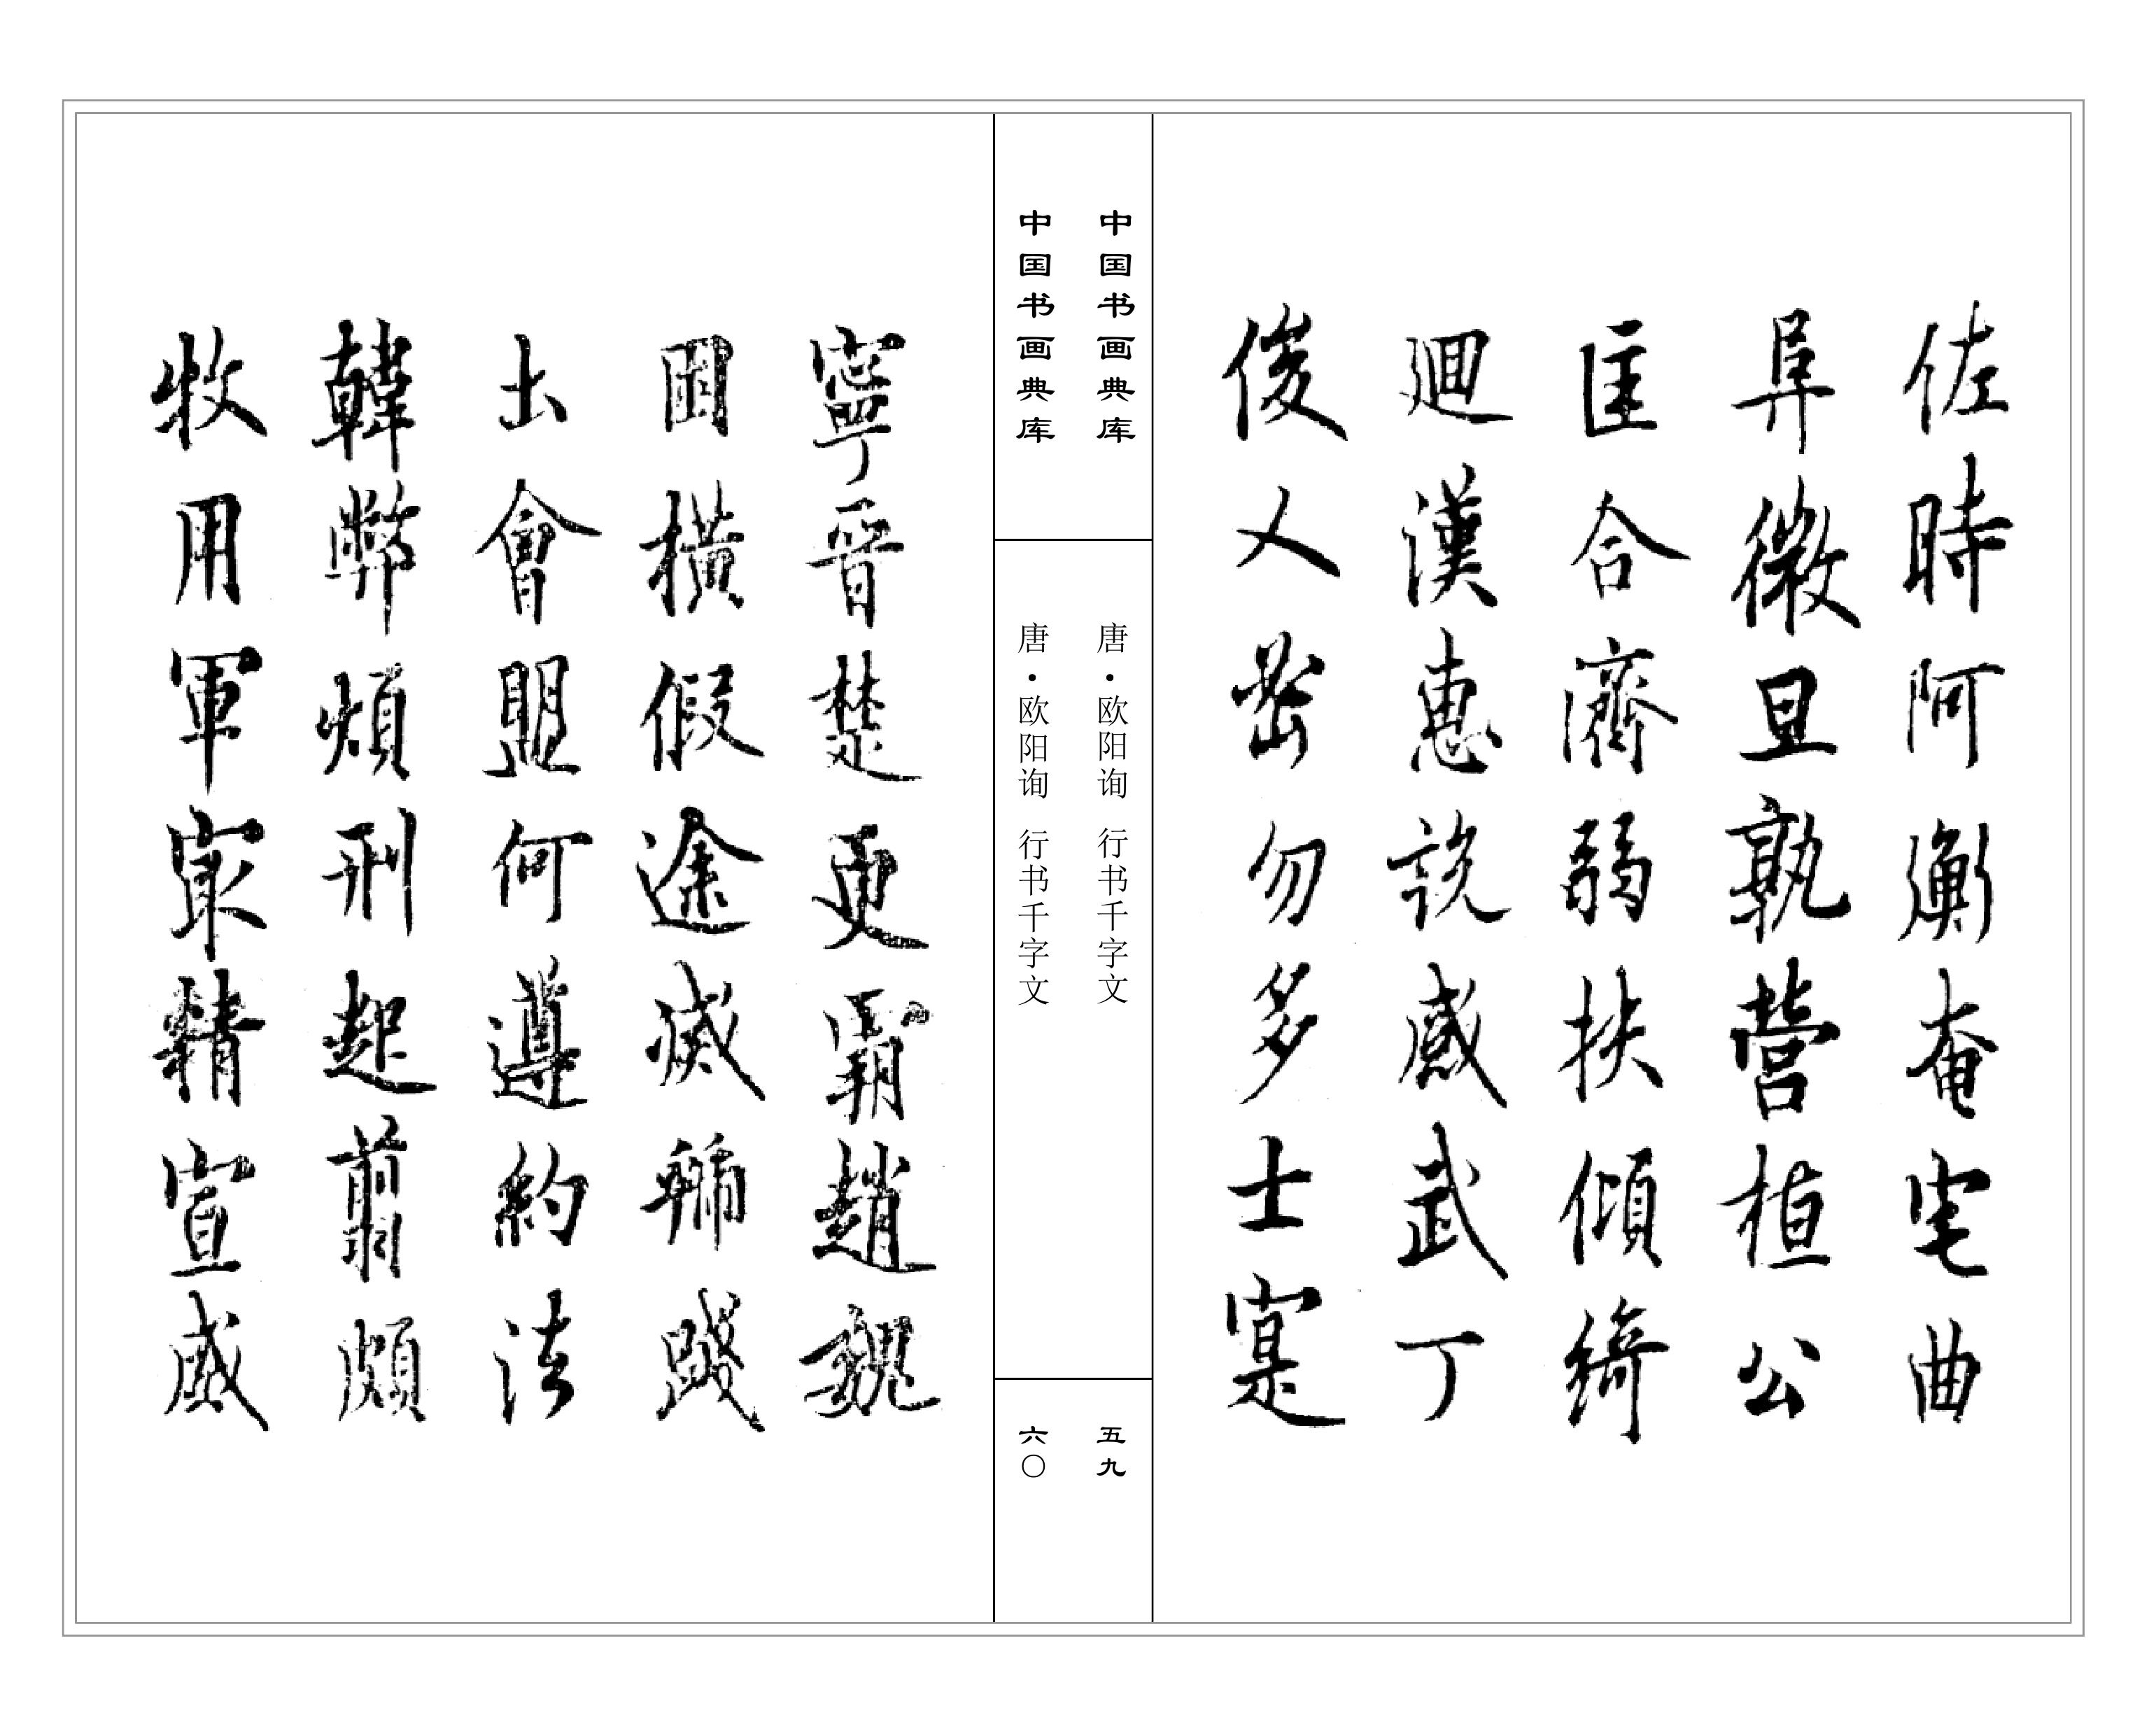 佐時阿衡奄宅曲
阜微旦孰營桓公
匡合濟弱扶傾綺
廻漢惠說感武丁
俊乂密勿多士寔
中国书画典库
唐·欧阳询 行书千字文
五九
中国书画典库
唐·欧阳询 行书千字文
六〇
寧晉楚更霸趙魏
困橫假途滅虢踐
土會盟何遵約法
韓弊煩刑起翦頗
牧用軍㝡精宣威